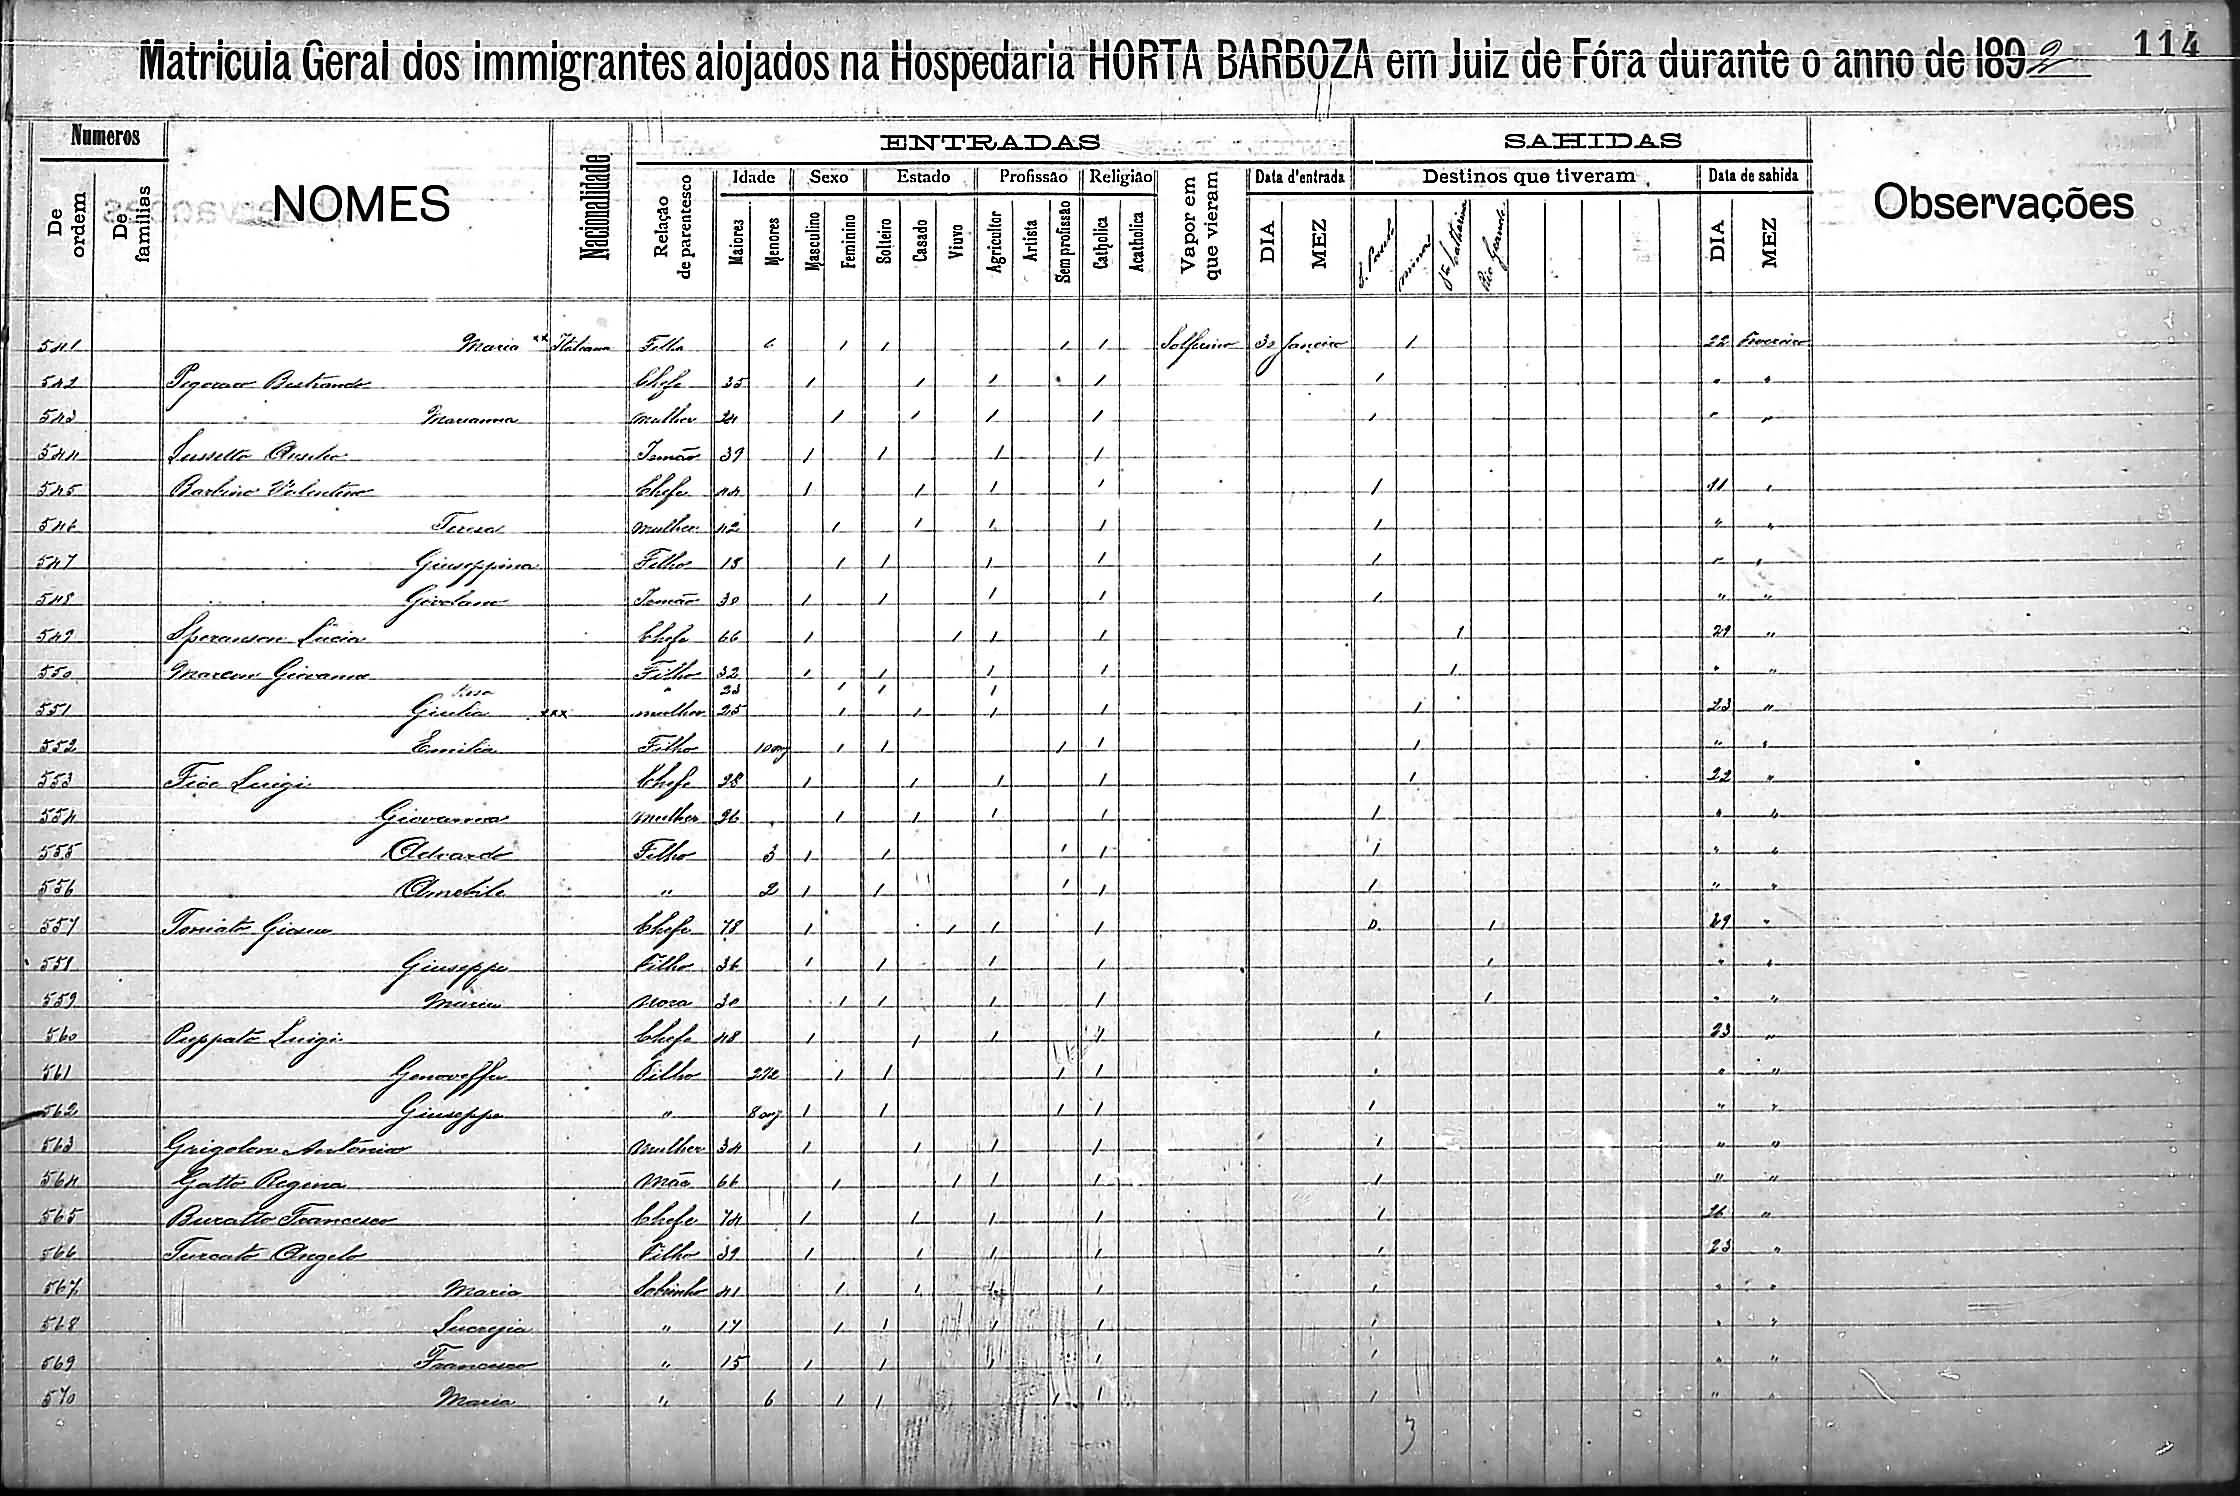 Matricula Geral dos immigrantes alojados na Hospedaria HORTA BARBOZA em Juiz de Fóra durante o anno de 1892 114
Numeros ENTRADAS SAHIDAS
De ordem De familias NOMES Nacionalidade Relação de parentesco Idade Sexo Estado Profissão Religião Vapor em que vieram Data d'entrada Destinos que tiveram Data de sahida Observações
Maiores Menores Masculino Feminino Solteiro Casado Viuvo Agricultor Artista Sem profissão Catholica Acatholica DIA MEZ S. Paulo Minas Sta Catharina Rio Grande DIA MEZ
541 Maria xx Italiana Filha 6 1 1 1 1 Solferino 30 Janeiro 1 22 Fevereiro
542 Pegoraro Chefe 35 1 1 1 1 1 " "
543 Marianna Mulher 24 1 1 1 1 1 " "
544 Irmão 39 1 1 1 1
545 Barbino Valentino Chefe 44 1 1 1 1 1 11 "
546 Teresa Mulher 42 1 1 1 1 1 " "
547 Giuseppina Filho 18 1 1 1 1 1 " "
548 Girolamo Irmão 30 1 1 1 1 1 " "
549 Lucia Chefe 66 1 1 1 1 1 29 "
550 Marcon Giovanni Filho 32 1 1 1 1 1 " "
Rosa " 23 1 1 1
551 Giulia xxx mulher 25 1 1 1 1 1 23 "
552 Emilia Filho 10 1 1 1 1 1 " "
553 Luigi Chefe 28 1 1 1 1 1 22 "
554 Giovanna Mulher 26 1 1 1 1 1 " "
555 Filho 3 1 1 1 1 1 " "
556 Amabile " 2 1 1 1 1 1 " "
557 Toniato Chefe 78 1 1 1 1 0 1 29 "
558 Giuseppe Filho 36 1 1 1 1 1 " "
559 Maria Nora 30 1 1 1 1 1 " "
560 Puppato Luigi Chefe 48 1 1 1 1 1 23 "
561 Genoveffa Filho 2 1/2 1 1 1 1 1 " "
562 Giuseppe " 8 1 1 1 1 1 " "
563 Grigolon Antonia Mulher 34 1 1 1 1 1 " "
564 Gatto Regina Mãe 66 1 1 1 1 1 " "
565 Buratto Francesco Chefe 74 1 1 1 1 1 26 "
566 Turcato Angelo Filho 39 1 1 1 1 1 23 "
567 Maria Sobrinho 41 1 1 1 1 1 " "
568 Lucrezia " 17 1 1 1 1 1 " "
569 Francesco " 15 1 1 1 1 1 " "
570 Maria " 6 1 1 1 1 1 " "
3